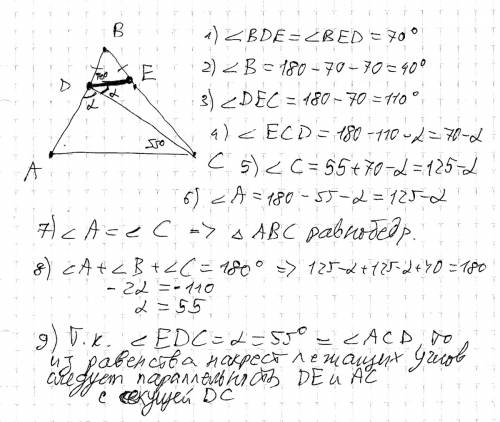 B
1) ∠BDE = ∠BED = 70°
2) ∠B = 180 - 70 - 70 = 40°
D 70° E
α α
3) ∠DEC = 180 - 70 = 110°
4) ∠ECD = 180 - 110 - α = 70 - α
55°
A C
5) ∠C = 55 + 70 - α = 125 - α
6) ∠A = 180 - 55 - α = 125 - α
7) ∠A = ∠C => △ABC равнобедр.
8) ∠A + ∠B + ∠C = 180° => 125 - α + 125 - α + 40 = 180
-2α = -110
α = 55
9) Т.к. ∠EDC = α = 55° = ∠ACD, то
из равенства накрест лежащих углов
следует параллельность DE и AC
с секущей DC